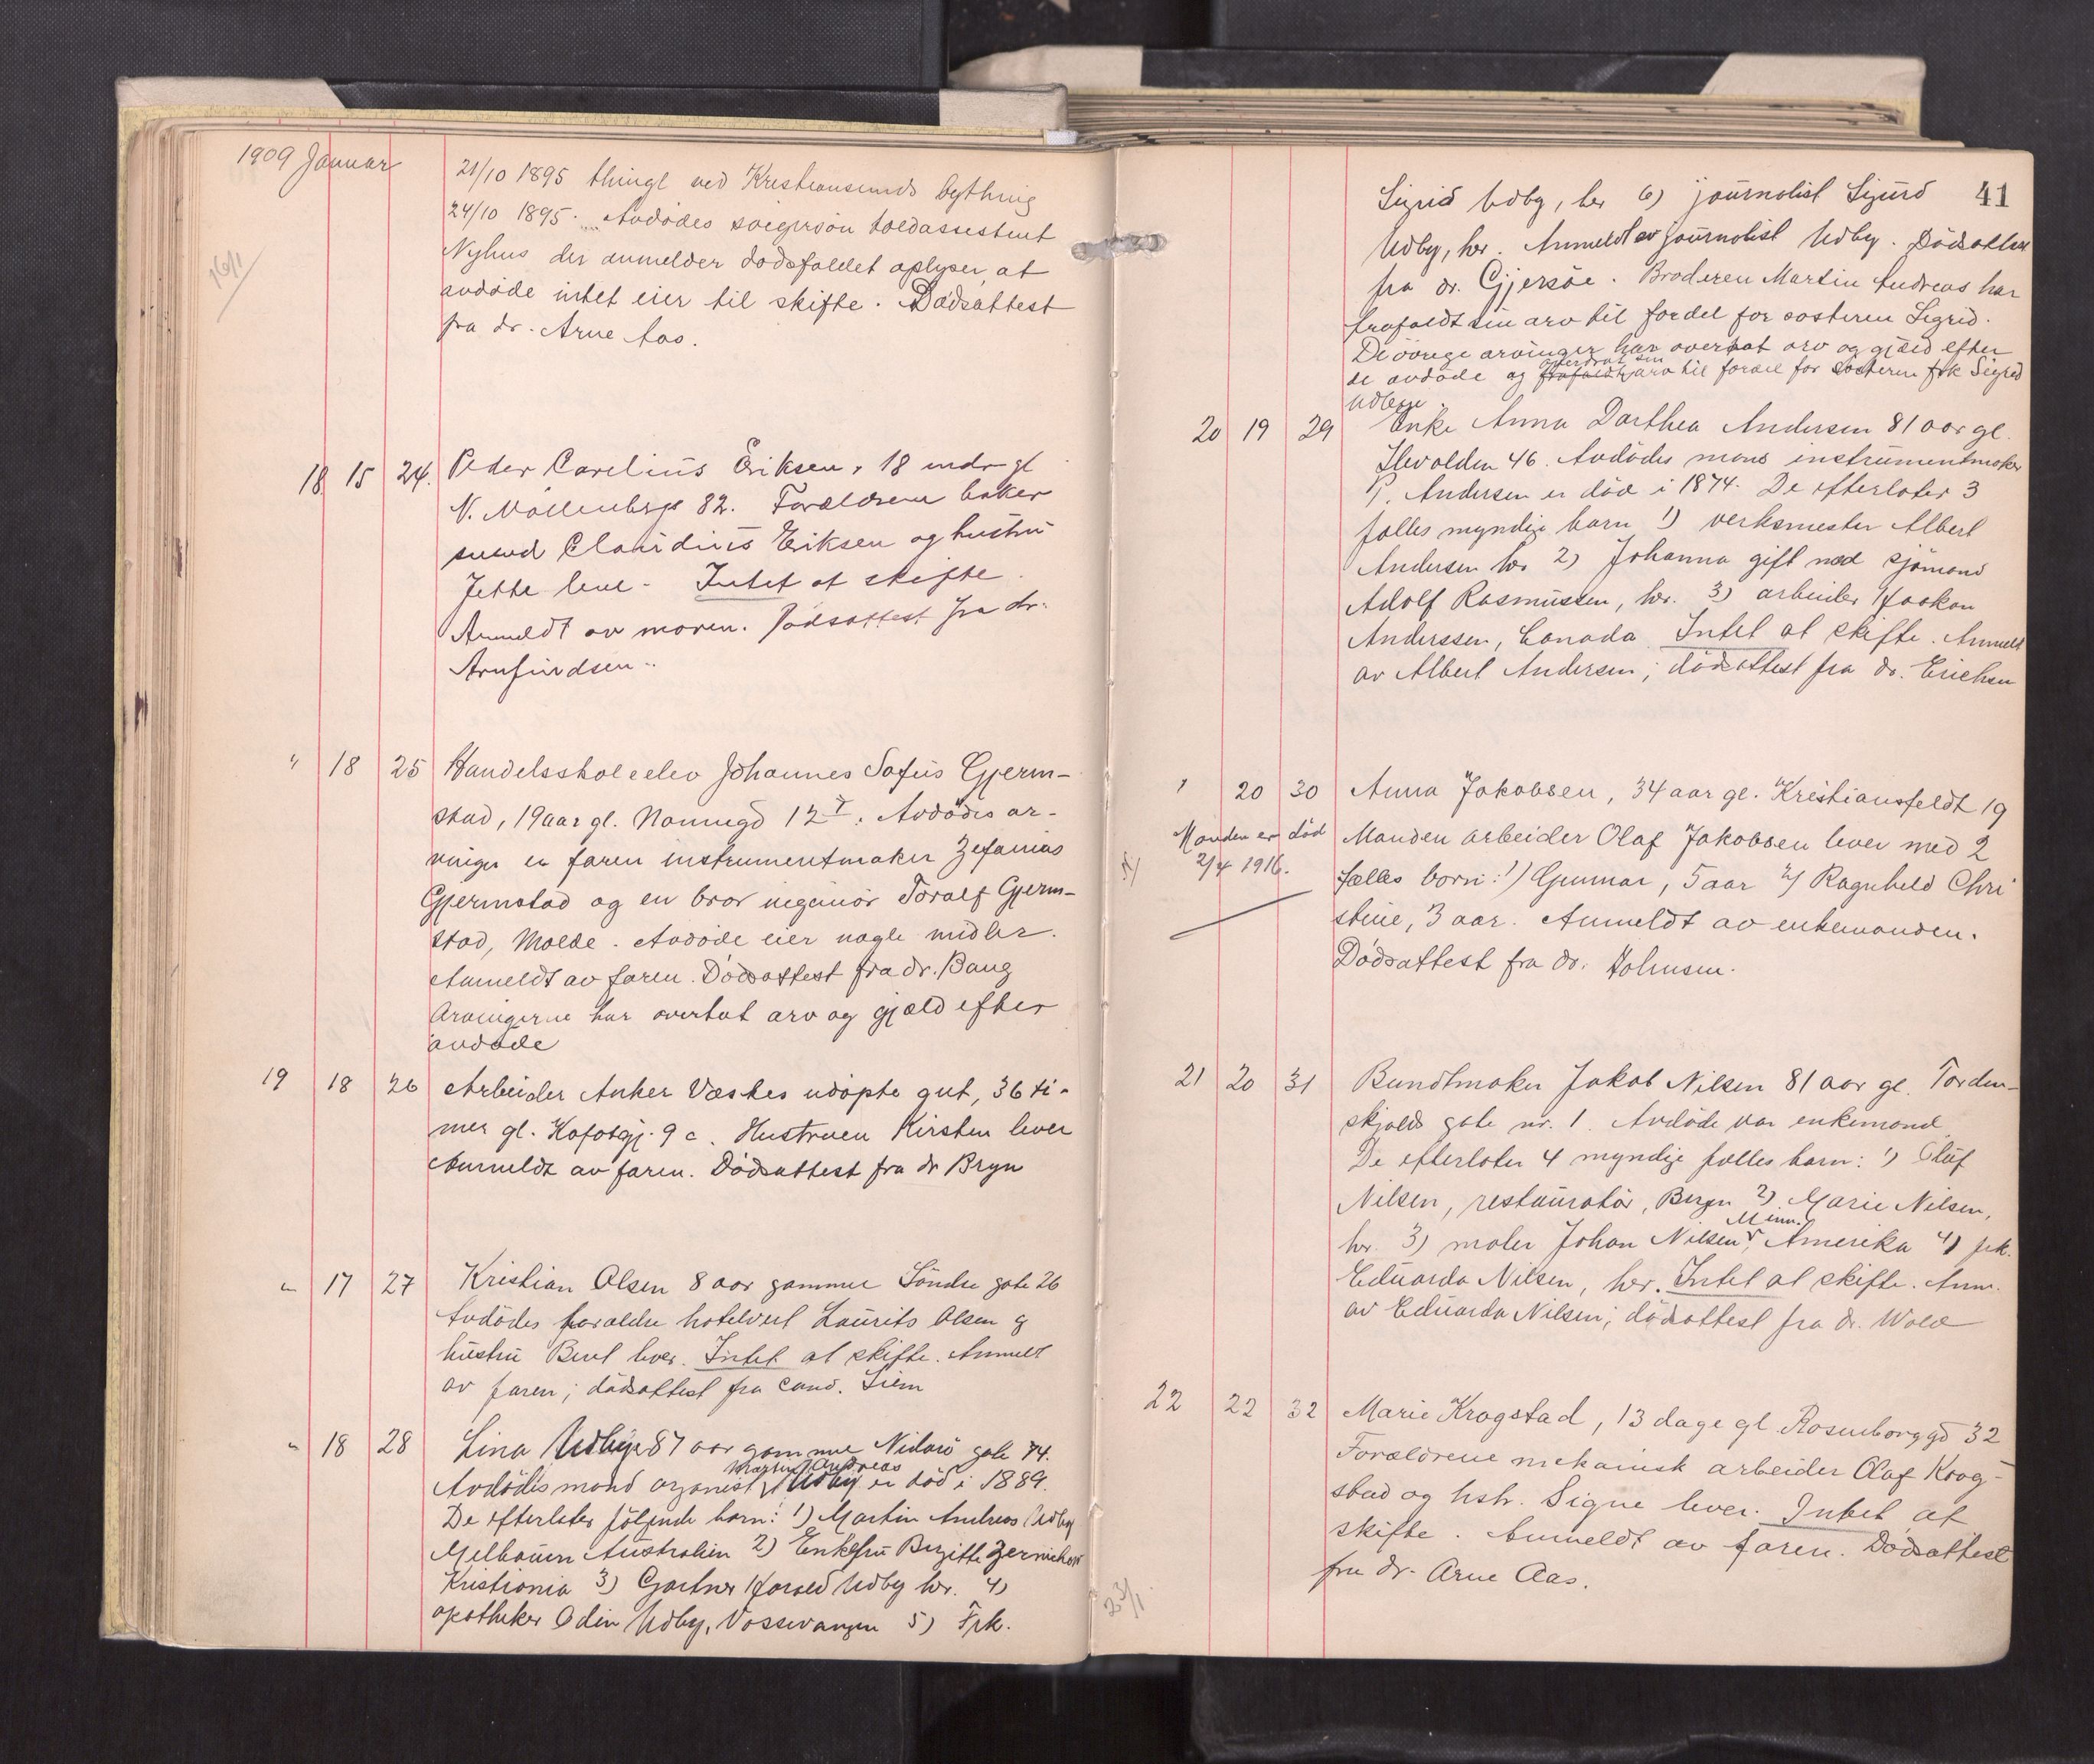 1909 Januar
21/10 1895 thingl ved Kristiansunds bything
24/10 1895. Avdödes svigersön toldassistent
Nyhus der anmelder dödsfaldet oplyser at
avdöde intet eier til skifte. Dödsattest
fra dr. Arne Aas.
16/1
18 15 24. Peder Carelius Eriksen, 18 mdr gl
N. Möllenbergs 82. Forældrene baker
svend Claudius Eriksen og hustru
Jette leve. Intet at skifte.
Anmeldt av moren. Dödsattest fra dr.
Arnfindsen.
" 18 25 Handelsskoleelev Johannes Sofus Gjerm-
stad, 19 aar gl. Nonnegd 12 I. Avdödes ar-
vinger er faren instrumentmaker Zefanias
Gjermstad og en bror ingeniör Toralf Gjerm-
stad, Molde. Avdöde eier nogle midler.
Anmeldt av faren. Dödsattest fra dr. Bang
Arvingerne har overtat arv og gjæld efter
avdöde
19 18 26 Arbeider Anker Væskes udöpte gut, 36 ti-
mer gl. Kofoedgj. 9 c. Hustruen Kirsten lever
Anmeldt av faren. Dödsattest fra dr Bryn
" 17 27 Kristian Olsen 8 aar gammel Söndre gate 26
Avdödes forældre hotelvert Laurits Olsen g
hustru Beret lever. Intet at skifte. Anmeldt
av faren; dödsattest fra cand. Siem
" 18 28 Lina Udbye 87 aar gammel Nidarö gate 14.
Martin Andreas
Avdödes mand organist Udby er död i 1889.
De efterlater fölgende barn: 1) Martin Andreas Udby
Melbourn Australien 2) Enkefru Birgitte Zernichow
Kristiania 3) Gartner Harald Udby her. 4)
apotheker Odin Udby, Vossevangen 5) Frk.
41
Sigrid Udby, her 6) journalist Sigurd
Udby, her. Anmeldt av journalist Udby. Dödsattest
fra dr. Gjersöe. Broderen Martin Andreas har
frafaldt sin arv til fordel for søsteren Sigrid.
De övrige arvinger har overtat arv og gjæld efter
overdrat sin
de avdöde og frafaldt arv til fordel for søsteren frk Sigrid
Udbye.
20 19 29 Enke Anna Dorthea Andersen 81 aar gl.
Ilevolden 46. Avdödes mand instrumentmaker
P. Andersen er död i 1874. De efterlater 3
fælles myndige barn 1) verksmester Albert
Andersen her 2) Johanna gift med sjömand
Adolf Rasmussen, her. 3) arbeider Haakon
Anderssen, Canada. Intet at skifte. Anmeldt
av Albert Andersen; dödsattest fra dr. Erichsen
" 20 30 Anna Jakobsen, 34 aar gl. Kristiansfeldt 19
Manden er död
2/4 1916.
Manden arbeider Olaf Jakobsen lever med 2
fælles born: 1) Gunnar, 5 aar 2) Ragnhild Chri
stine, 3 aar. Anmeldt av enkemanden.
Dödsattest fra dr. Holmsen.
21 20 31 Bundtmaker Jakob Nilsen 81 aar gl. Torden-
skjolds gate nr. 1. Avdöde var enkemand.
De efterlater 4 myndige fælles barn: 1) Oluf
Nilsen, restauratör, Bergen 2) Marie Nilsen,
Minn.
her. 3) maler Johan Nilsen, Amerika 4) frk.
Eduarda Nilsen, her. Intet at skifte. Anm.
av Eduarda Nilsen; dödsattest fra dr. Wold
22 22 32 Marie Krogstad, 13 dage gl. Rosenborggd 32
Forældrene mekanisk arbeider Olaf Krog-
stad og hstr. Signe lever. Intet at
skifte. Anmeldt av faren. Dödsattest
fra dr. Arne Aas.
23/1